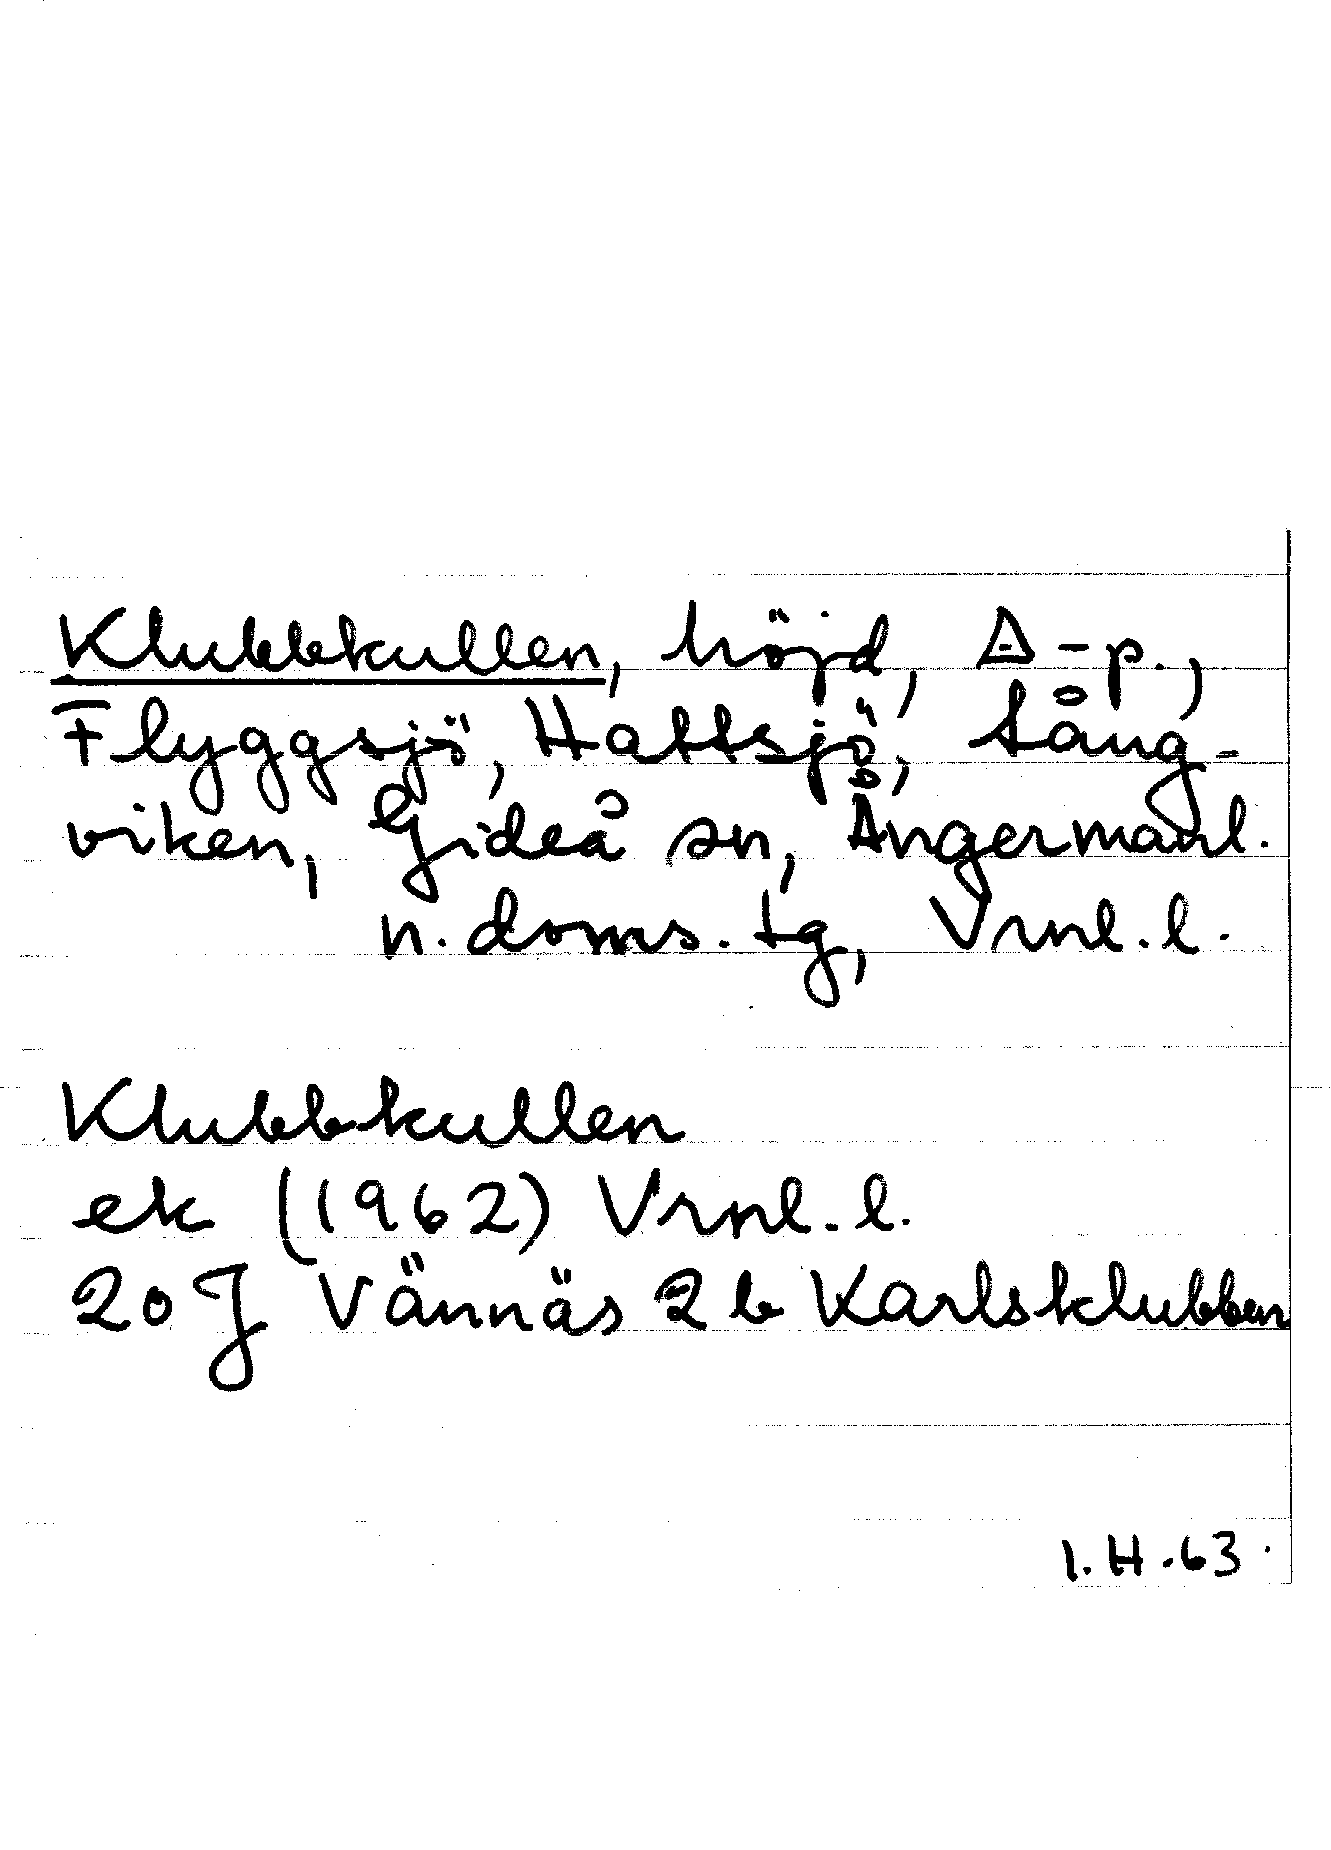 Klubbkullen, höjd, △-p.,
Flyggsjö, Hattsjö, tång-
viken, Gideå sn, Ångermanl.
n. doms. tg, Vrnl. l.
Klubbkullen
ek (1962) Vrnl. l.
20 J Vännäs 2 b Karlsklubben
I. H. 63.